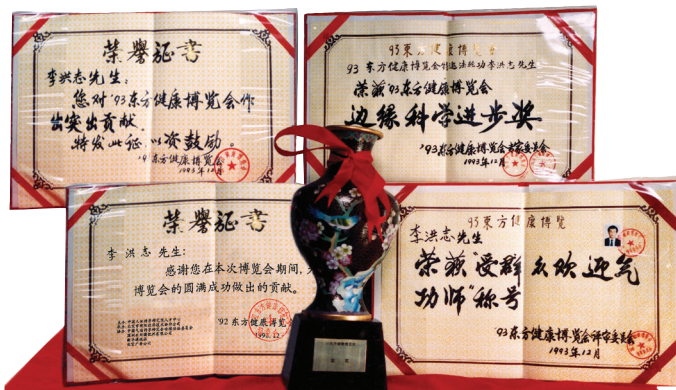 荣誉证书
李洪志先生:
您对'93东方健康博览会作
出突出贡献.
特发此证,以资鼓励。
'92东方健康博览会
1993年12月
93東方健康博覧會
荣获'93东方健康博览会
边缘科学进步奖
'93东方健康博览会评审委员会
1993年12月
荣誉证书
李洪志先生:
感谢您在本次博览会期间,
博览会的圆满成功做出的贡献。
'92东方健康博览
1992.12
93東方健康博覧
李洪志先生
荣获"受群众欢迎气
功师"称号
'93东方健康博览会评审委员会
1993年12月